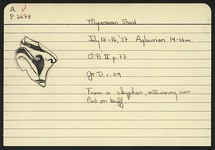 A
P 2678
Mycenaean Sherd
July 12-16, '37 Aglaurion 14-15 m.
O.B. II p. 77
gr. D. 0.09
From a skyphos, intervening rim
Red on buff